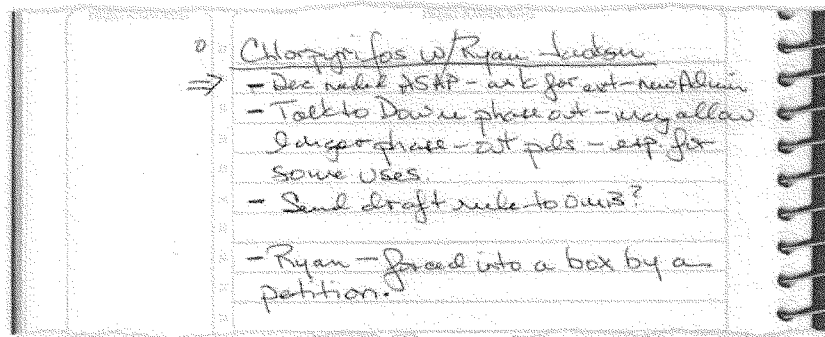 Chlorpyrifos w/Ryan Jackson
⇒ - Dec needed ASAP - ask for ext - new Admin
- Talk to Dow re phase out - may allow
longer phase-out pds - esp for
some uses
- Send draft rule to OMB?
- Ryan - forced into a box by a
petition.